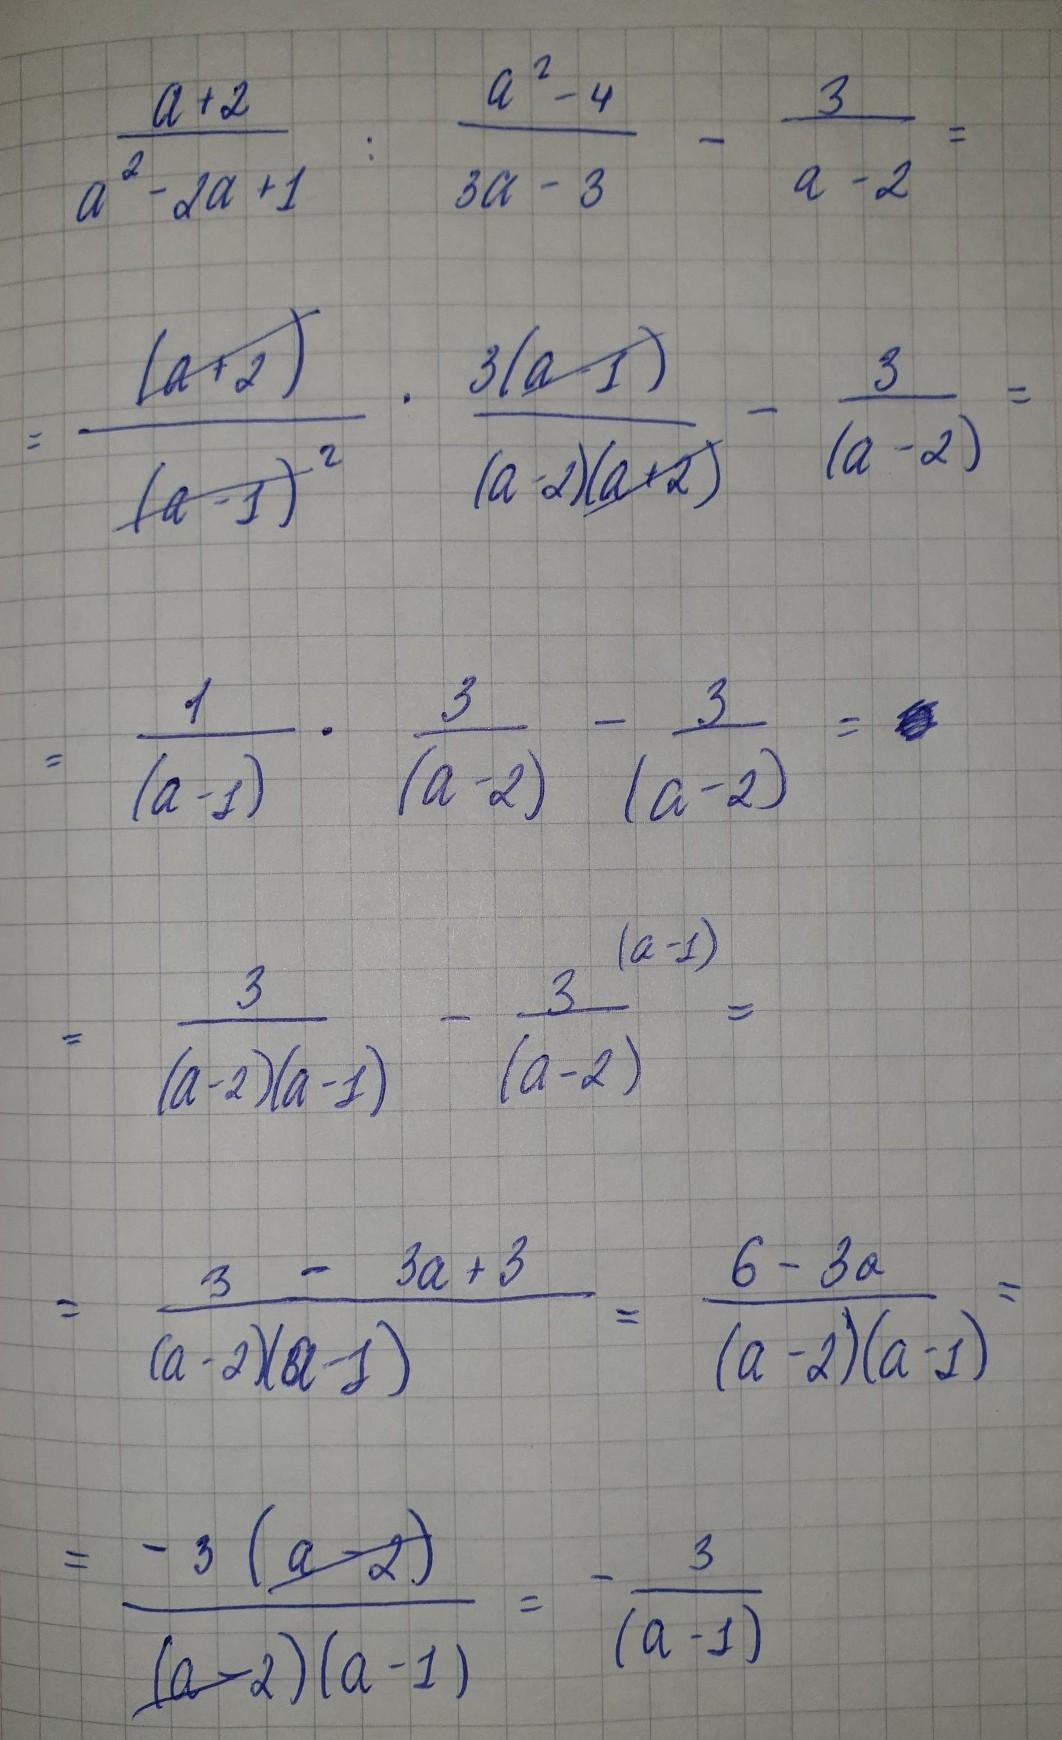 a+2 / a²-2a+1 : a²-4 / 3a-3 - 3 / a-2 =
= (a+2) / (a-1)² · 3(a-1) / (a-2)(a+2) - 3 / (a-2) =
= 1 / (a-1) · 3 / (a-2) - 3 / (a-2) =
= 3 / (a-2)(a-1) - 3 (a-1) / (a-2) =
= 3 - 3a+3 / (a-2)(a-1) = 6-3a / (a-2)(a-1) =
= -3(a-2) / (a-2)(a-1) = - 3 / (a-1)